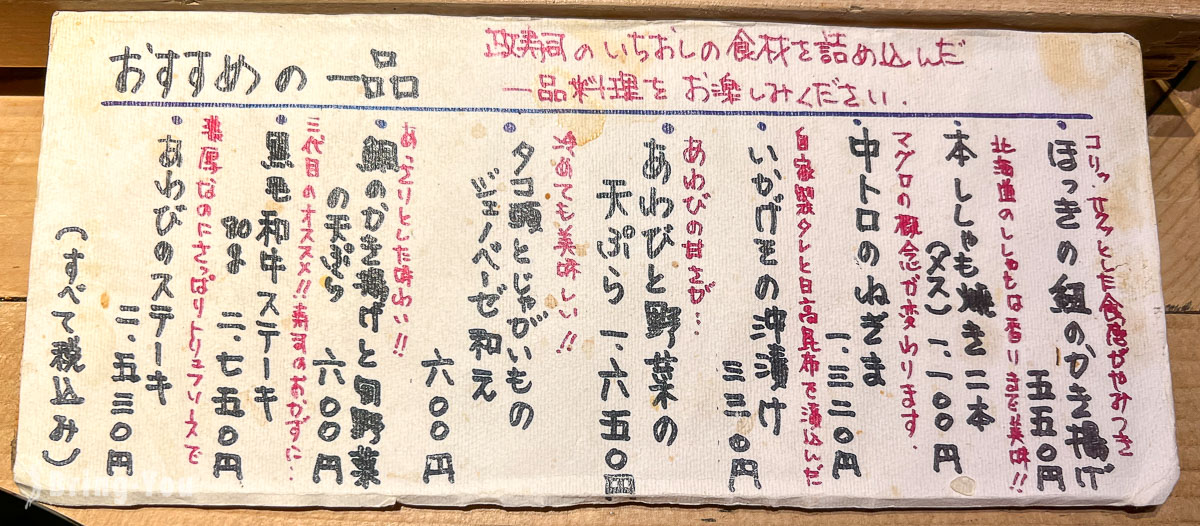 おすすめの一品
政寿司のいちおしの食材を詰め込んだ
一品料理をお楽しみください.
コリッ.サクッとした食感がやみつき
・ほっきの紐のかき揚げ
五五〇円
北海道のししゃもは香りまで美味!!
・本ししゃも焼き二本
(メス) 一、一〇〇円
マグロの概念が変わります.
・中トロのねぎま
一、三二〇円
自家製タレと日高昆布で漬込んだ
・いかげその沖漬け
三三〇円
あわびの甘さが…
・あわびと野菜の
天ぷら 一、六五〇円
冷めても美味しい!!
・タコ頭とじゃがいもの
ジェノベーゼ和え
六〇〇円
あっさりとした味わい!!
のかき揚げと旬野菜
の天ぷら 六〇〇円
三代目のオススメ!!寿司のおかずに…
・黒毛和牛ステーキ
80g 二、七五〇円
濃厚なのにさっぱりトリュフソースで
・あわびのステーキ
二、五三〇円
(すべて税込み)